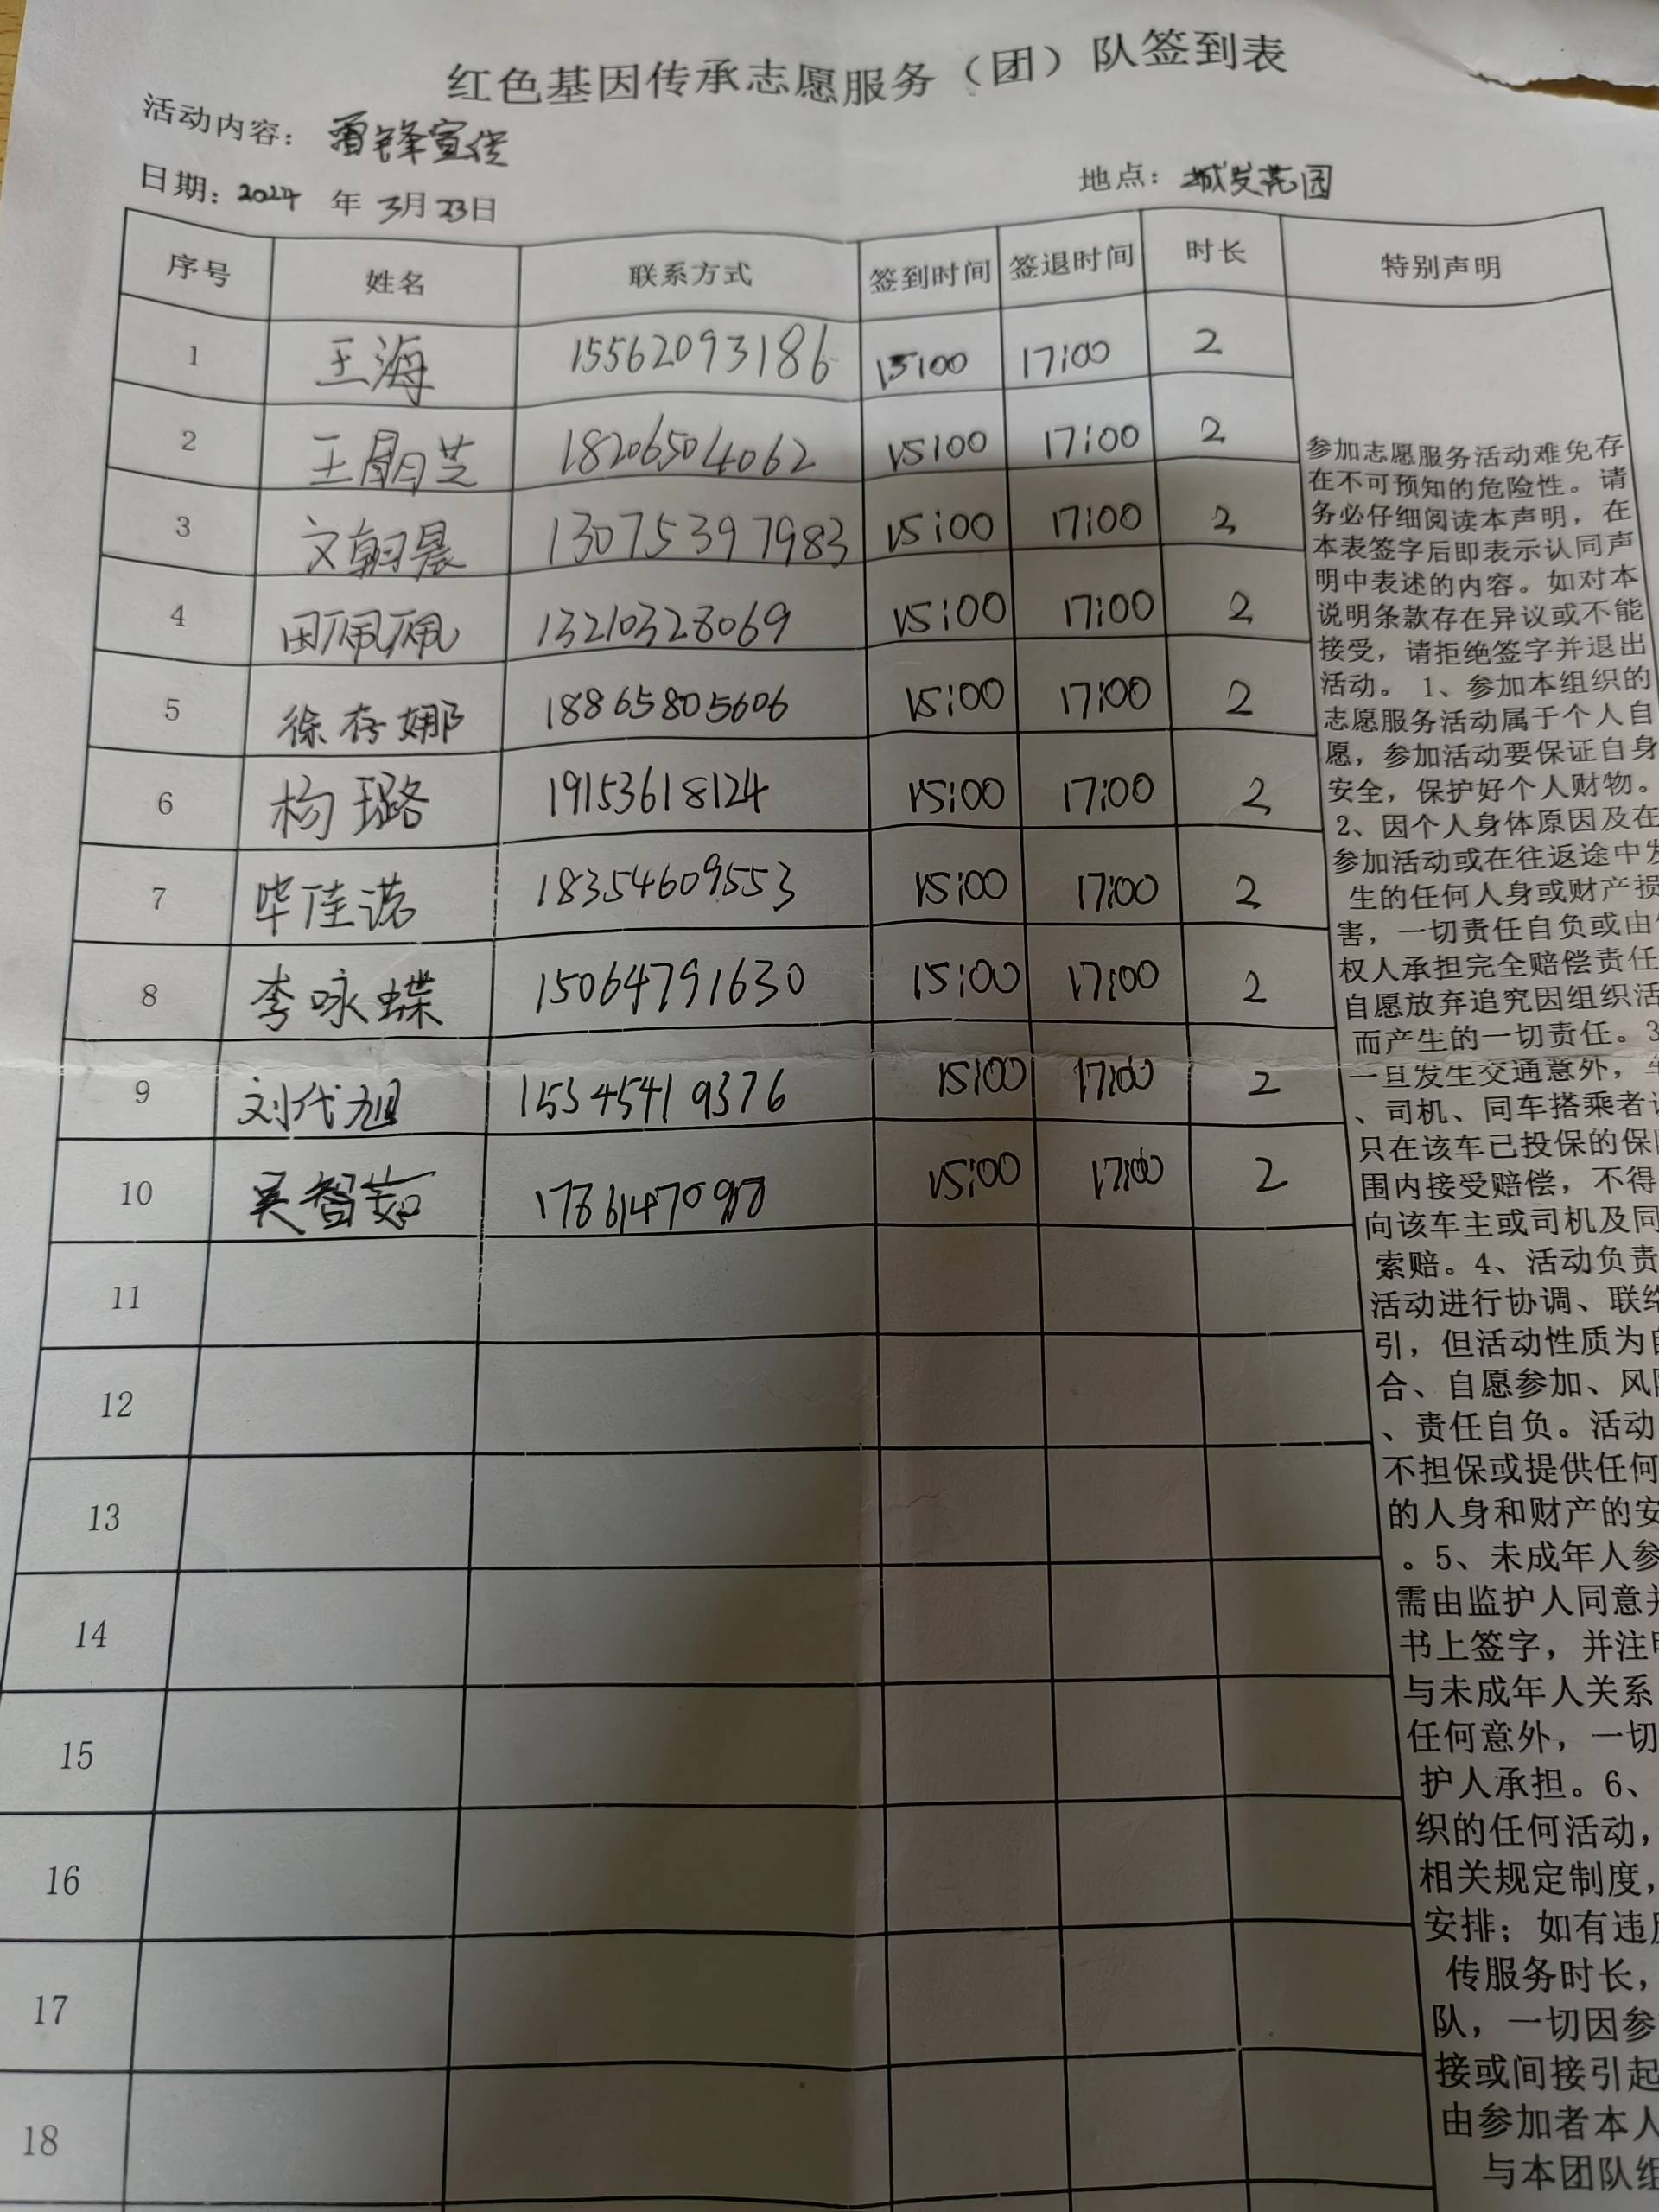 红色基因传承志愿服务（团）队签到表
活动内容：雷锋宣传
日期：2024 年 3月 23日 地点：城发花园
序号 姓名 联系方式 签到时间 签退时间 时长 特别声明
1 王海 15562093186 15:00 17:00 2
2 王 芝 18206504062 15:00 17:00 2
3 文朝晨 13075397983 15:00 17:00 2
4 田佩佩 13210328069 15:00 17:00 2
5 徐存娜 18865805606 15:00 17:00 2
6 杨璐 19153618124 15:00 17:00 2
7 毕佳诺 18354609553 15:00 17:00 2
8 李咏蝶 15064791630 15:00 17:00 2
9 刘代旭 15345419376 15:00 17:00 2
10 吴智茹 15:00 17:00 2
11
12
13
14
15
16
17
18
参加志愿服务活动难免存
在不可预知的危险性。请
务必仔细阅读本声明，在
本表签字后即表示认同声
明中表述的内容。如对本
说明条款存在异议或不能
接受，请拒绝签字并退出
活动。1、参加本组织的
志愿服务活动属于个人自
愿，参加活动要保证自身
安全，保护好个人财物。
2、因个人身体原因及在
参加活动或在往返途中发
生的任何人身或财产损
害，一切责任自负或由
权人承担完全赔偿责任
自愿放弃追究因组织活
而产生的一切责任。3
一旦发生交通意外，
、司机、同车搭乘者
只在该车已投保的保
围内接受赔偿，不得
向该车主或司机及同
索赔。4、活动负责
活动进行协调、联络
引，但活动性质为自
合、自愿参加、风
、责任自负。活动
不担保或提供任何
的人身和财产的安
。5、未成年人参
需由监护人同意并
书上签字，并注明
与未成年人关系
任何意外，一切
护人承担。6、
织的任何活动，
相关规定制度，
安排；如有违反
传服务时长，
队，一切因参
接或间接引起
由参加者本人
与本团队组